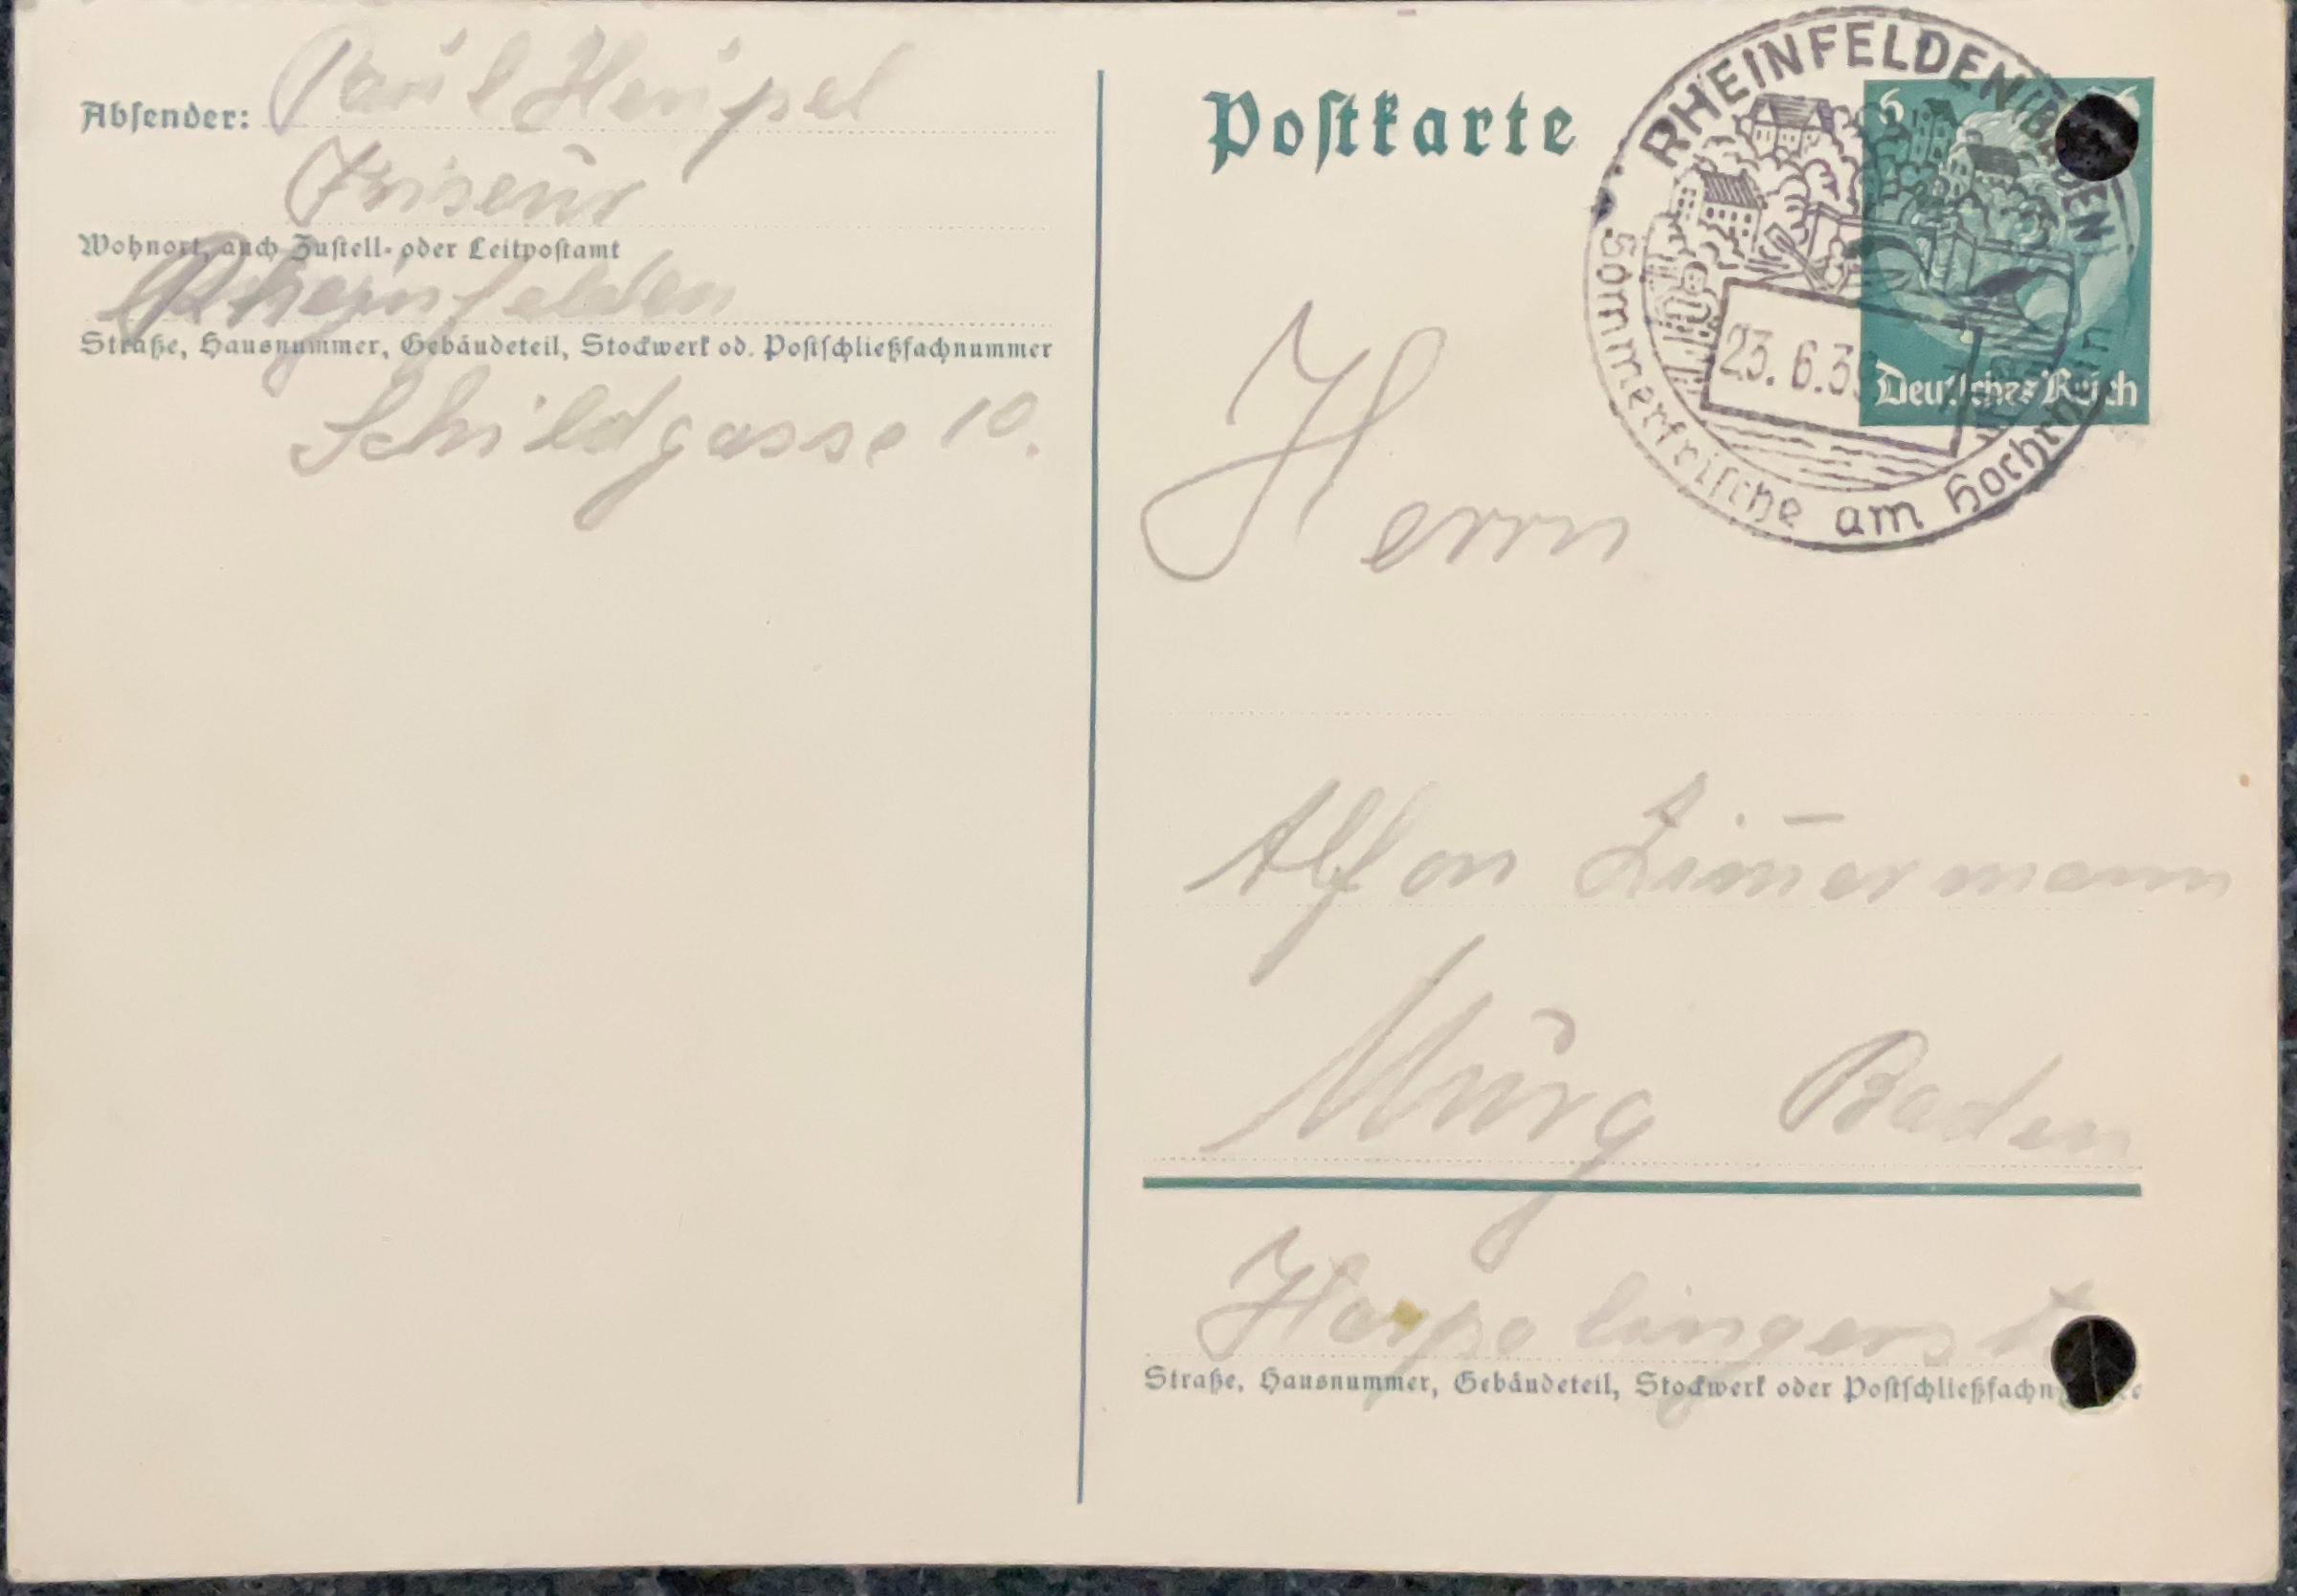 Absender: Paul Heupel
Friseur
Wohnort, auch Zustell- oder Leitpostamt
Rheinfelden
Straße, Hausnummer, Gebäudeteil, Stockwerk od. Postschließfachnummer
Schildgasse 10.
Postkarte
RHEINFELDEN (BADEN)
Sommerfrische am Hochrhein
23. 6. 3
6
Deutsches Reich
Herrn
Alfon Zim̅ermann
Murg Baden
Harpolingerst
Straße, Hausnummer, Gebäudeteil, Stockwerk oder Postschließfachn